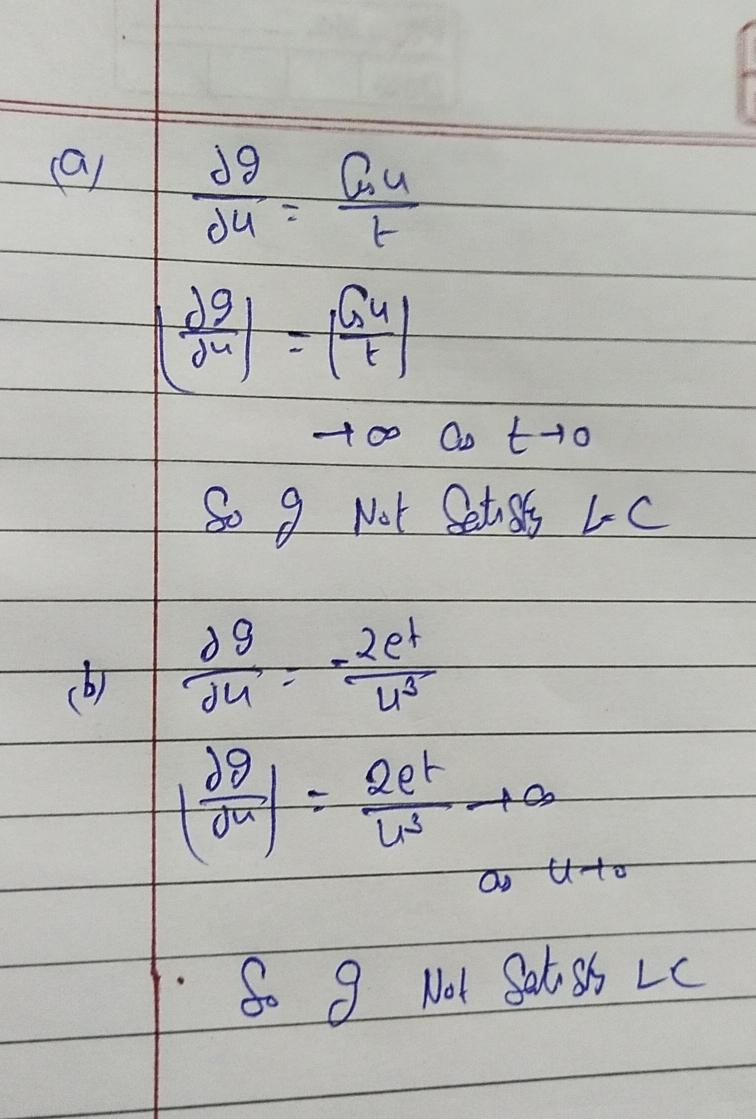 (a) ∂g/∂u = Cos u/t
|∂g/∂u| = |Cos u/t|
→ ∞ as t→0
So g Not Satisfy LC
(b) ∂g/∂u = -2et/u³
|∂g/∂u| = 2et/u³ → ∞
as u→0
So g Not Satisfy LC